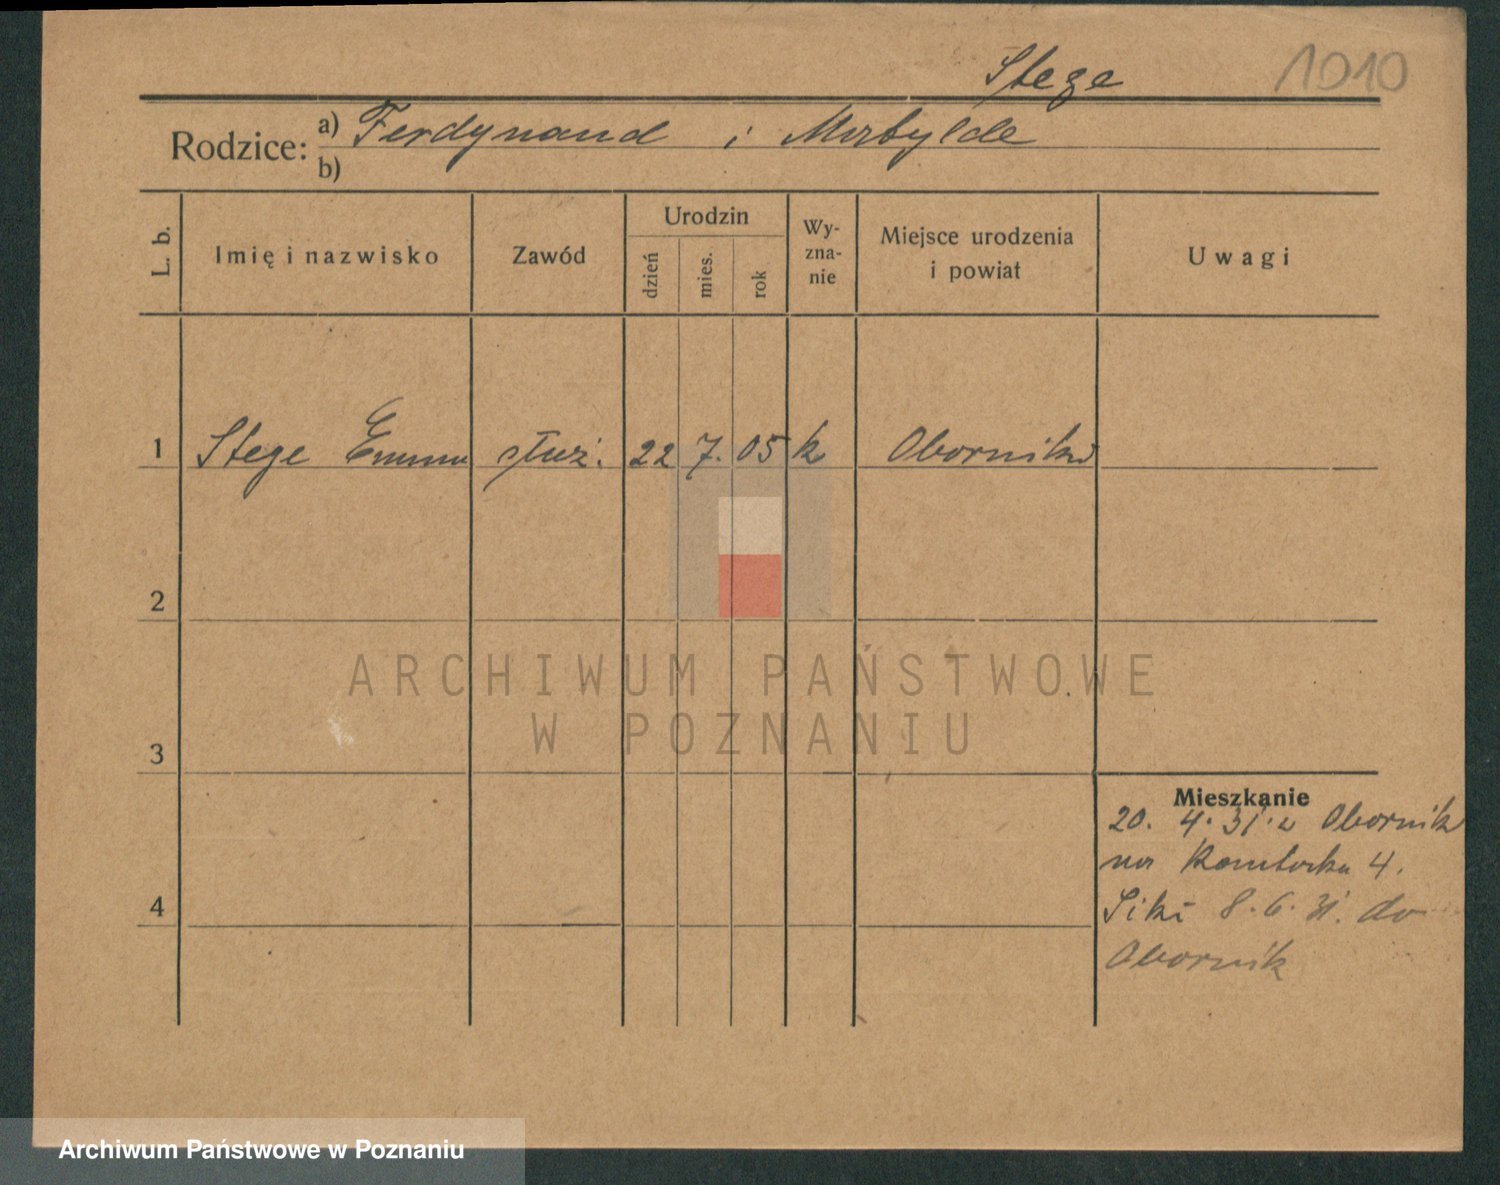 Stege 1010
Rodzice: a) Ferdynand i Matylde
b)
L. b. Imię i nazwisko Zawód Urodzin dzień mies. rok Wy-zna-nie Miejsce urodzenia i powiat Uwagi
1 Stege Emma służ. 22 7. 05 k Oborniki
2
ARCHIWUM PAŃSTWOWE
W POZNANIU
3
Mieszkanie
20. 4. 31. z Obornik
na 4.
4
8. 6. 31. do
Obornik
Archiwum Państwowe w Poznaniu